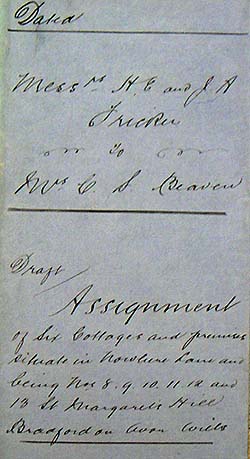 Dated
Messrs H. E and J. A
Fricker
to
Mrs C. S. Beaven
Draft/
Assignment
of Six Cottages and premises
situate in Newtown Lane and
being Nos 8. 9. 10. 11. 12 and
13 St Margarets Hill
Bradford on Avon Wilts